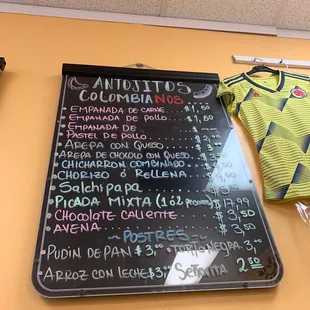 ANTOJITOS
COLOMBIANOS
EMPANADA DE CARNE $1,50
EMPANADA DE POLLO $1,50
EMPANADA DE
PASTEL DE POLLO
AREPA CON QUESO
AREPA DE CHOCOLO CON QUESO
CHICHARRON COMBINADO
CHORIZO ó RELLENA
Salchipapa
PICADA MIXTA (1ó2 personas) $17,99
CHOCOLATE CALIENTE $3,50
AVENA $3,50
~ POSTRES ~
PUDIN DE PAN $3,00 TORTA NEGRA 3,00
ARROZ CON LECHE $3,00 SEÑORITA 2 50